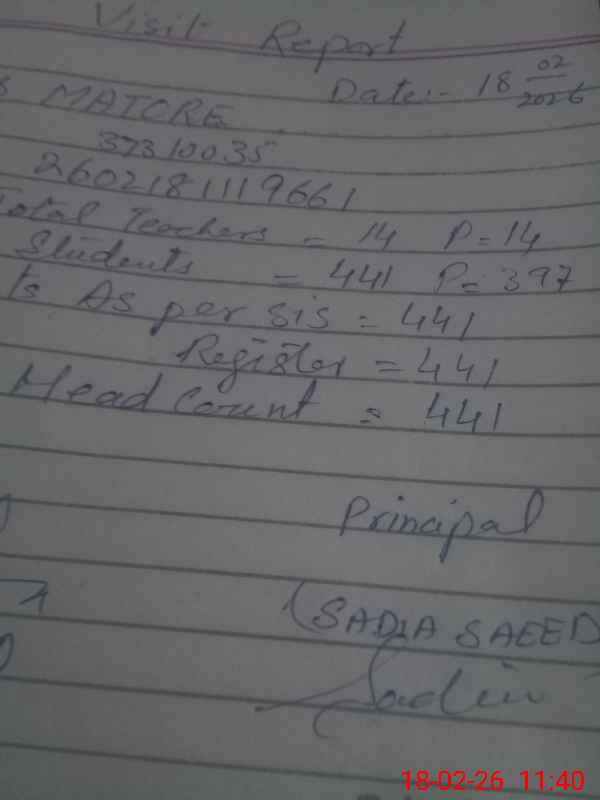 Visit Report
Date:- 18 02/2026
MATORE
37310035
2602181119661
Total Teachers = 14 P=14
Students = 441 P=397
ts As per sis = 441
Register = 441
Head Count = 441
Principal
(SADIA SAEED
Sadia
18-02-26 11:40